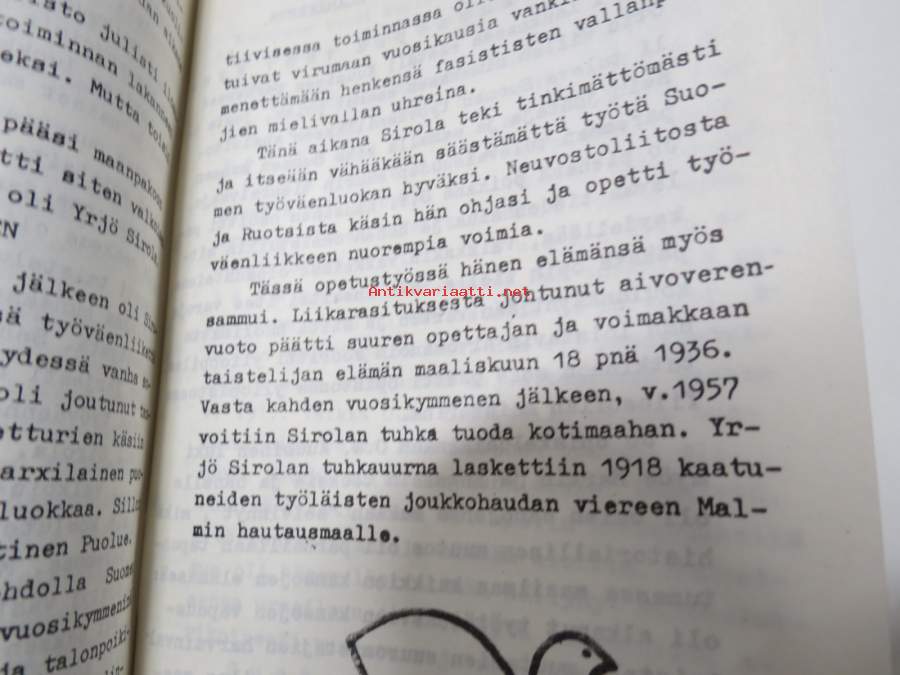 isto julisti
toiminnan lakann
eksi. Mutta
pääsi maanpakoon
tti siten
oli Yrjö Sirola.
EN
jälkeen oli
sä työväenliik
ydessä vanha
oli joutunut
etturien käsiin
arxilainen
luokkaa.
tinen Puolue.
hdolla Suomen
vuosikymmenin
ja talonpoiki-
tiivisessa toiminnassa
tuivat virumaan vuosikausia
menettämään henkensä fasististen vallanp
jien mielivallan uhreina.
Tänä aikana Sirola teki tinkimättömästi
ja itseään vähääkään säästämättä työtä Suo-
men työväenluokan hyväksi. Neuvostoliitosta
ja Ruotsista käsin hän ohjasi ja opetti työ-
väenliikkeen nuorempia voimia.
Tässä opetustyössä hänen elämänsä myös
sammui. Liikarasituksesta johtunut aivoveren-
vuoto päätti suuren opettajan ja voimakkaan
taistelijan elämän maaliskuun 18 pnä 1936.
Vasta kahden vuosikymmenen jälkeen, v.1957
voitiin Sirolan tuhka tuoda kotimaahan. Yr-
jö Sirolan tuhkauurna laskettiin 1918 kaatu-
neiden työläisten joukkohaudan viereen Mal-
min hautausmaalle.
Antikvariaatti.net